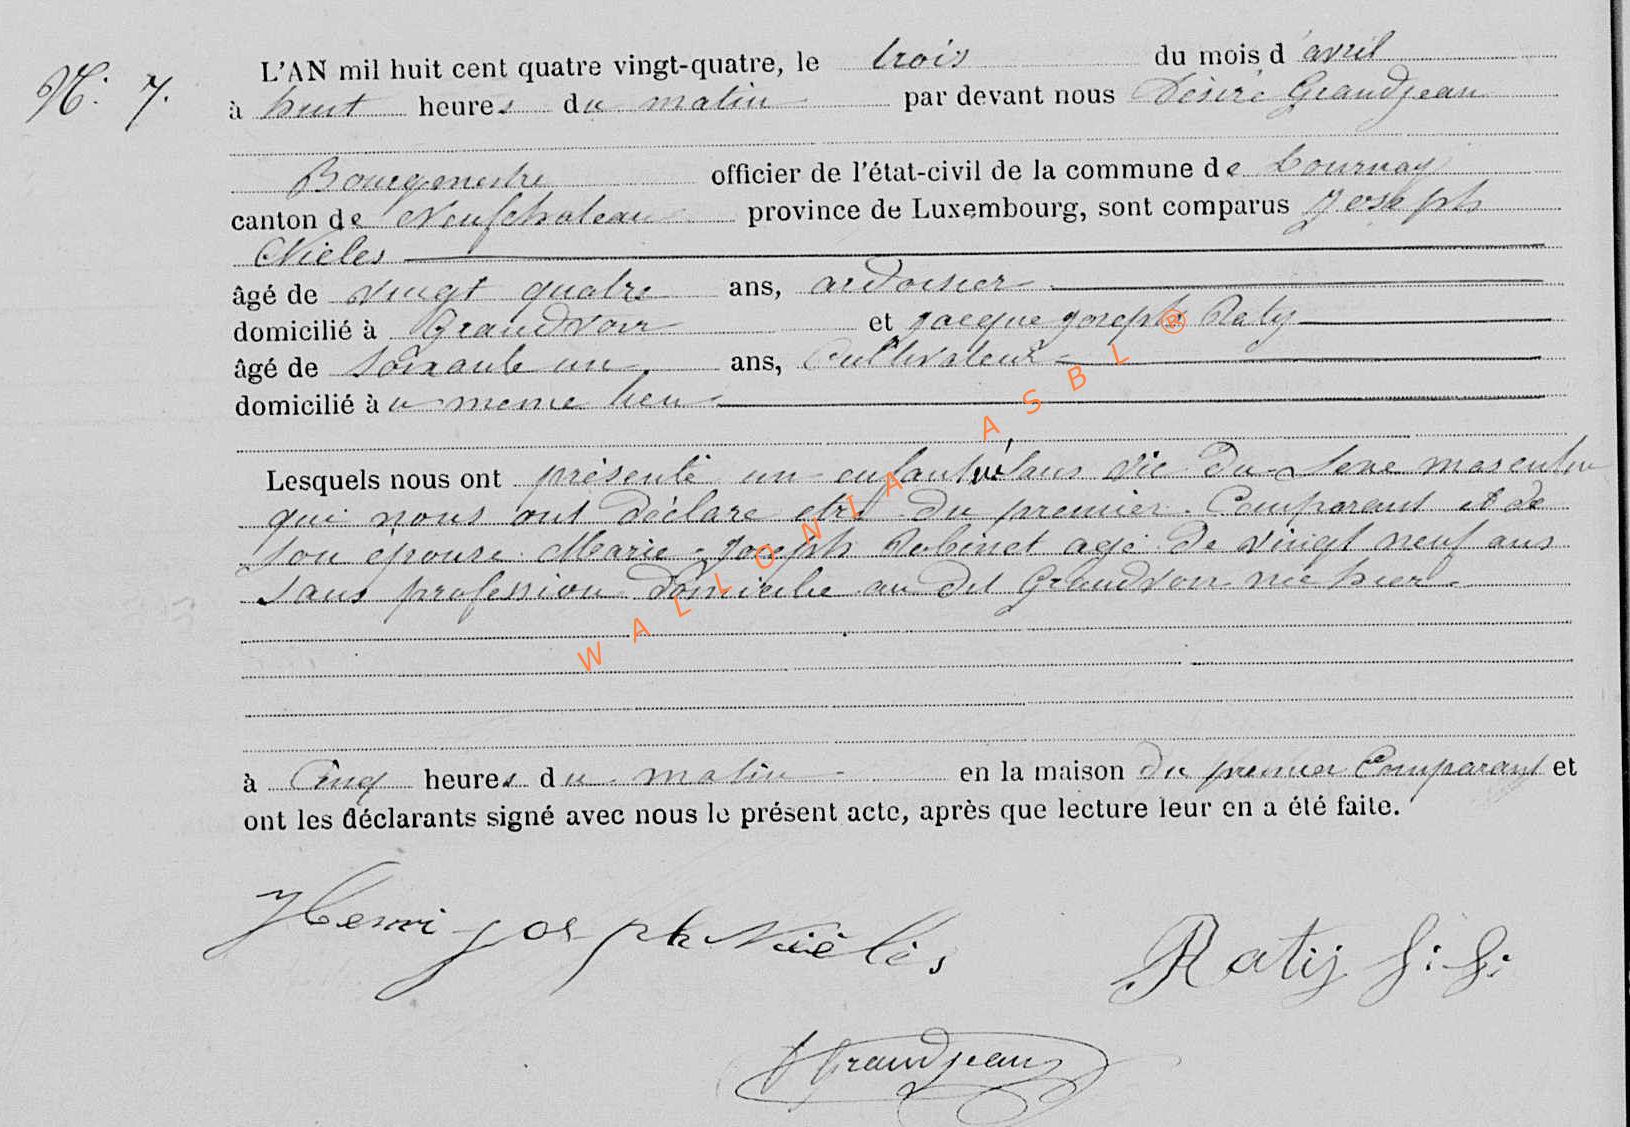 N.° 7.
L'AN mil huit cent quatre vingt-quatre, le trois du mois d'avril
à huit heures du matin par devant nous Désiré Grandjean
Bourgmestre officier de l'état-civil de la commune de Tournay
canton de Neufchateau province de Luxembourg, sont comparus Joseph
Nieles
âgé de vingt quatre ans, ardoisier
domicilié à Grandvoir et Jacque Joseph Raty
âgé de soixante un ans, Cultivateur
domicilié à u meme lieu
Lesquels nous ont présenté un enfant né sans vie du sexe masculin
qui nous ont déclaré etre du premier Comparant et de
son épouse Marie-Joseph Robinet agé de vingt neuf ans
sans profession domicilie au dit Grandvoir née hier
à Cinq heures du matin en la maison du premier Comparant et
ont les déclarants signé avec nous le présent acte, après que lecture leur en a été faite.
Henri Joseph Nièlès Ratij J: J:
Grandjean
WALLONIA ASBL ®